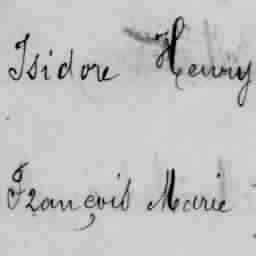 Isidore Henry
François Marie